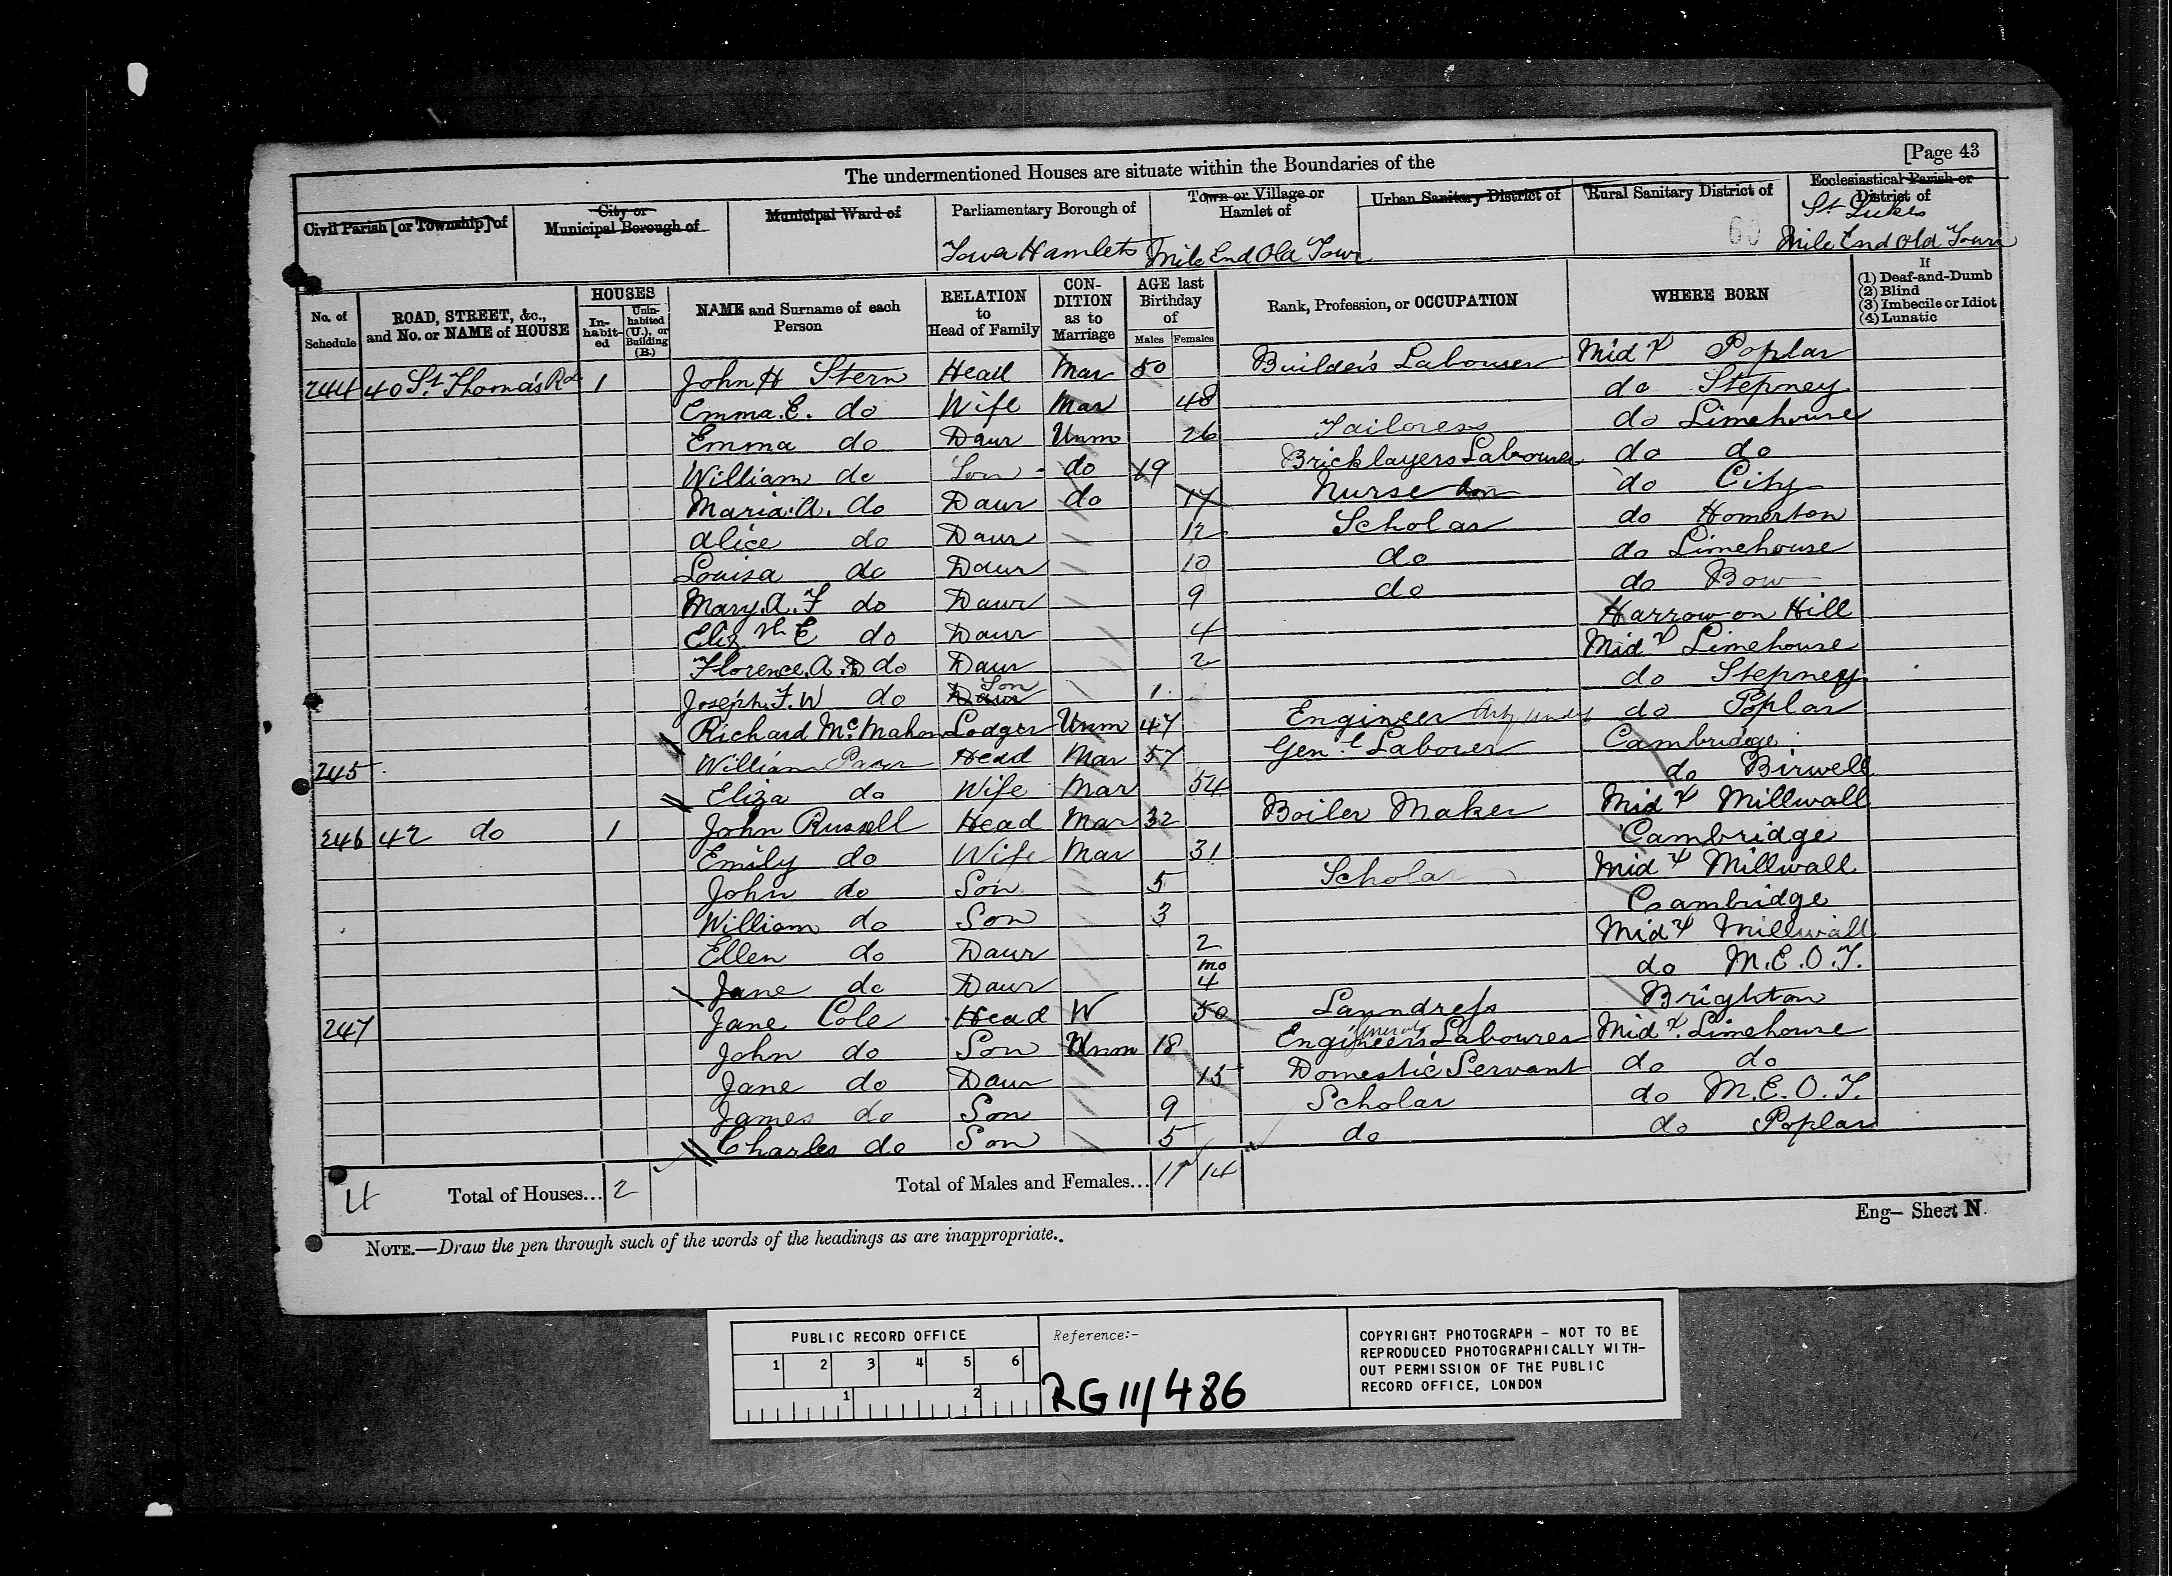 The undermentioned Houses are situate within the Boundaries of the [Page 43
Civil Parish [or Township] of City or Municipal Borough of Municipal Ward of Parliamentary Borough of Town or Village or Hamlet of Urban Sanitary District of Rural Sanitary District of Ecclesiastical Parish or District of
Tower Hamlets Mile End Old Town 60 St Lukes Mile End Old Town
No. of Schedule ROAD, STREET, &c., and No. or NAME of HOUSE HOUSES In-habit-ed Unin-habited (U.), or Building (B.) NAME and Surname of each Person RELATION to Head of Family CON-DITION as to Marriage AGE last Birthday of Males Females Rank, Profession, or OCCUPATION WHERE BORN If (1) Deaf-and-Dumb (2) Blind (3) Imbecile or Idiot (4) Lunatic
244 40 St. Thomas's Rd 1 John H Stern Head Mar 50 Builder's Labourer Midx Poplar
Emma. E. do Wife Mar 48 do Stepney
Emma do Daur Unm 26 Tailoress do Limehouse
William do Son do 19 Bricklayers Labourer do do
Maria. A. do Daur do 17 Nurse Dom do City
Alice do Daur 12 Scholar do Homerton
Louisa do Daur 10 do do Limehouse
Mary. A. F do Daur 9 do do Bow
Elizth E do Daur 4 Harrow on Hill
Florence. A. do Daur 2 Midx Limehouse
Joseph. F. W do Daur Son 1 do Stepney
Richard McMahon Lodger Unm 47 Engineer do Poplar
245 William Head Mar 57 Genl Labourer Cambridge
Eliza do Wife Mar 54 do Birwell
246 42 do 1 John Russell Head Mar 32 Boiler Maker Midx Millwall
Emily do Wife Mar 31 Cambridge
John do Son 5 Scholar Midx Millwall
William do Son 3 Cambridge
Ellen do Daur 2 Midx Millwall
Jane do Daur mo 4 do M.E.O.T.
247 Jane Cole Head W 50 Laundress Brighton
John do Son Unm 18 Engineers Labourer Midx. Limehouse
Jane do Daur 15 Domestic Servant do do
James do Son 9 Scholar do M.E.O.T.
Charles do Son 5 do do Poplar
4 Total of Houses... 2 Total of Males and Females... 11 14
Eng- Sheet N.
NOTE.—Draw the pen through such of the words of the headings as are inappropriate..
PUBLIC RECORD OFFICE
1 2 3 4 5 6
1 2
Reference:-
RG 11/486
COPYRIGHT PHOTOGRAPH - NOT TO BE
REPRODUCED PHOTOGRAPHICALLY WITH-
OUT PERMISSION OF THE PUBLIC
RECORD OFFICE, LONDON